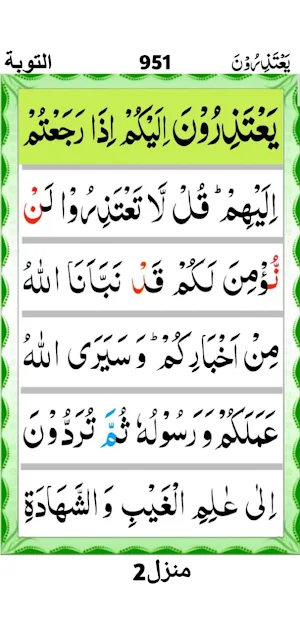 يَعْتَذِرُوْنَ 951 التوبة
يَعْتَذِرُوْنَ اِلَيْكُمْ اِذَا رَجَعْتُمْ
اِلَيْهِمْ ؕ قُلْ لَّا تَعْتَذِرُوْا لَنْ
نُّؤْمِنَ لَكُمْ قَدْ نَبَّاَنَا اللّٰهُ
مِنْ اَخْبَارِكُمْ ؕ وَ سَيَرَى اللّٰهُ
عَمَلَكُمْ وَ رَسُوْلُهٗ ثُمَّ تُرَدُّوْنَ
اِلٰى عٰلِمِ الْغَيْبِ وَ الشَّهَادَةِ
منزل2